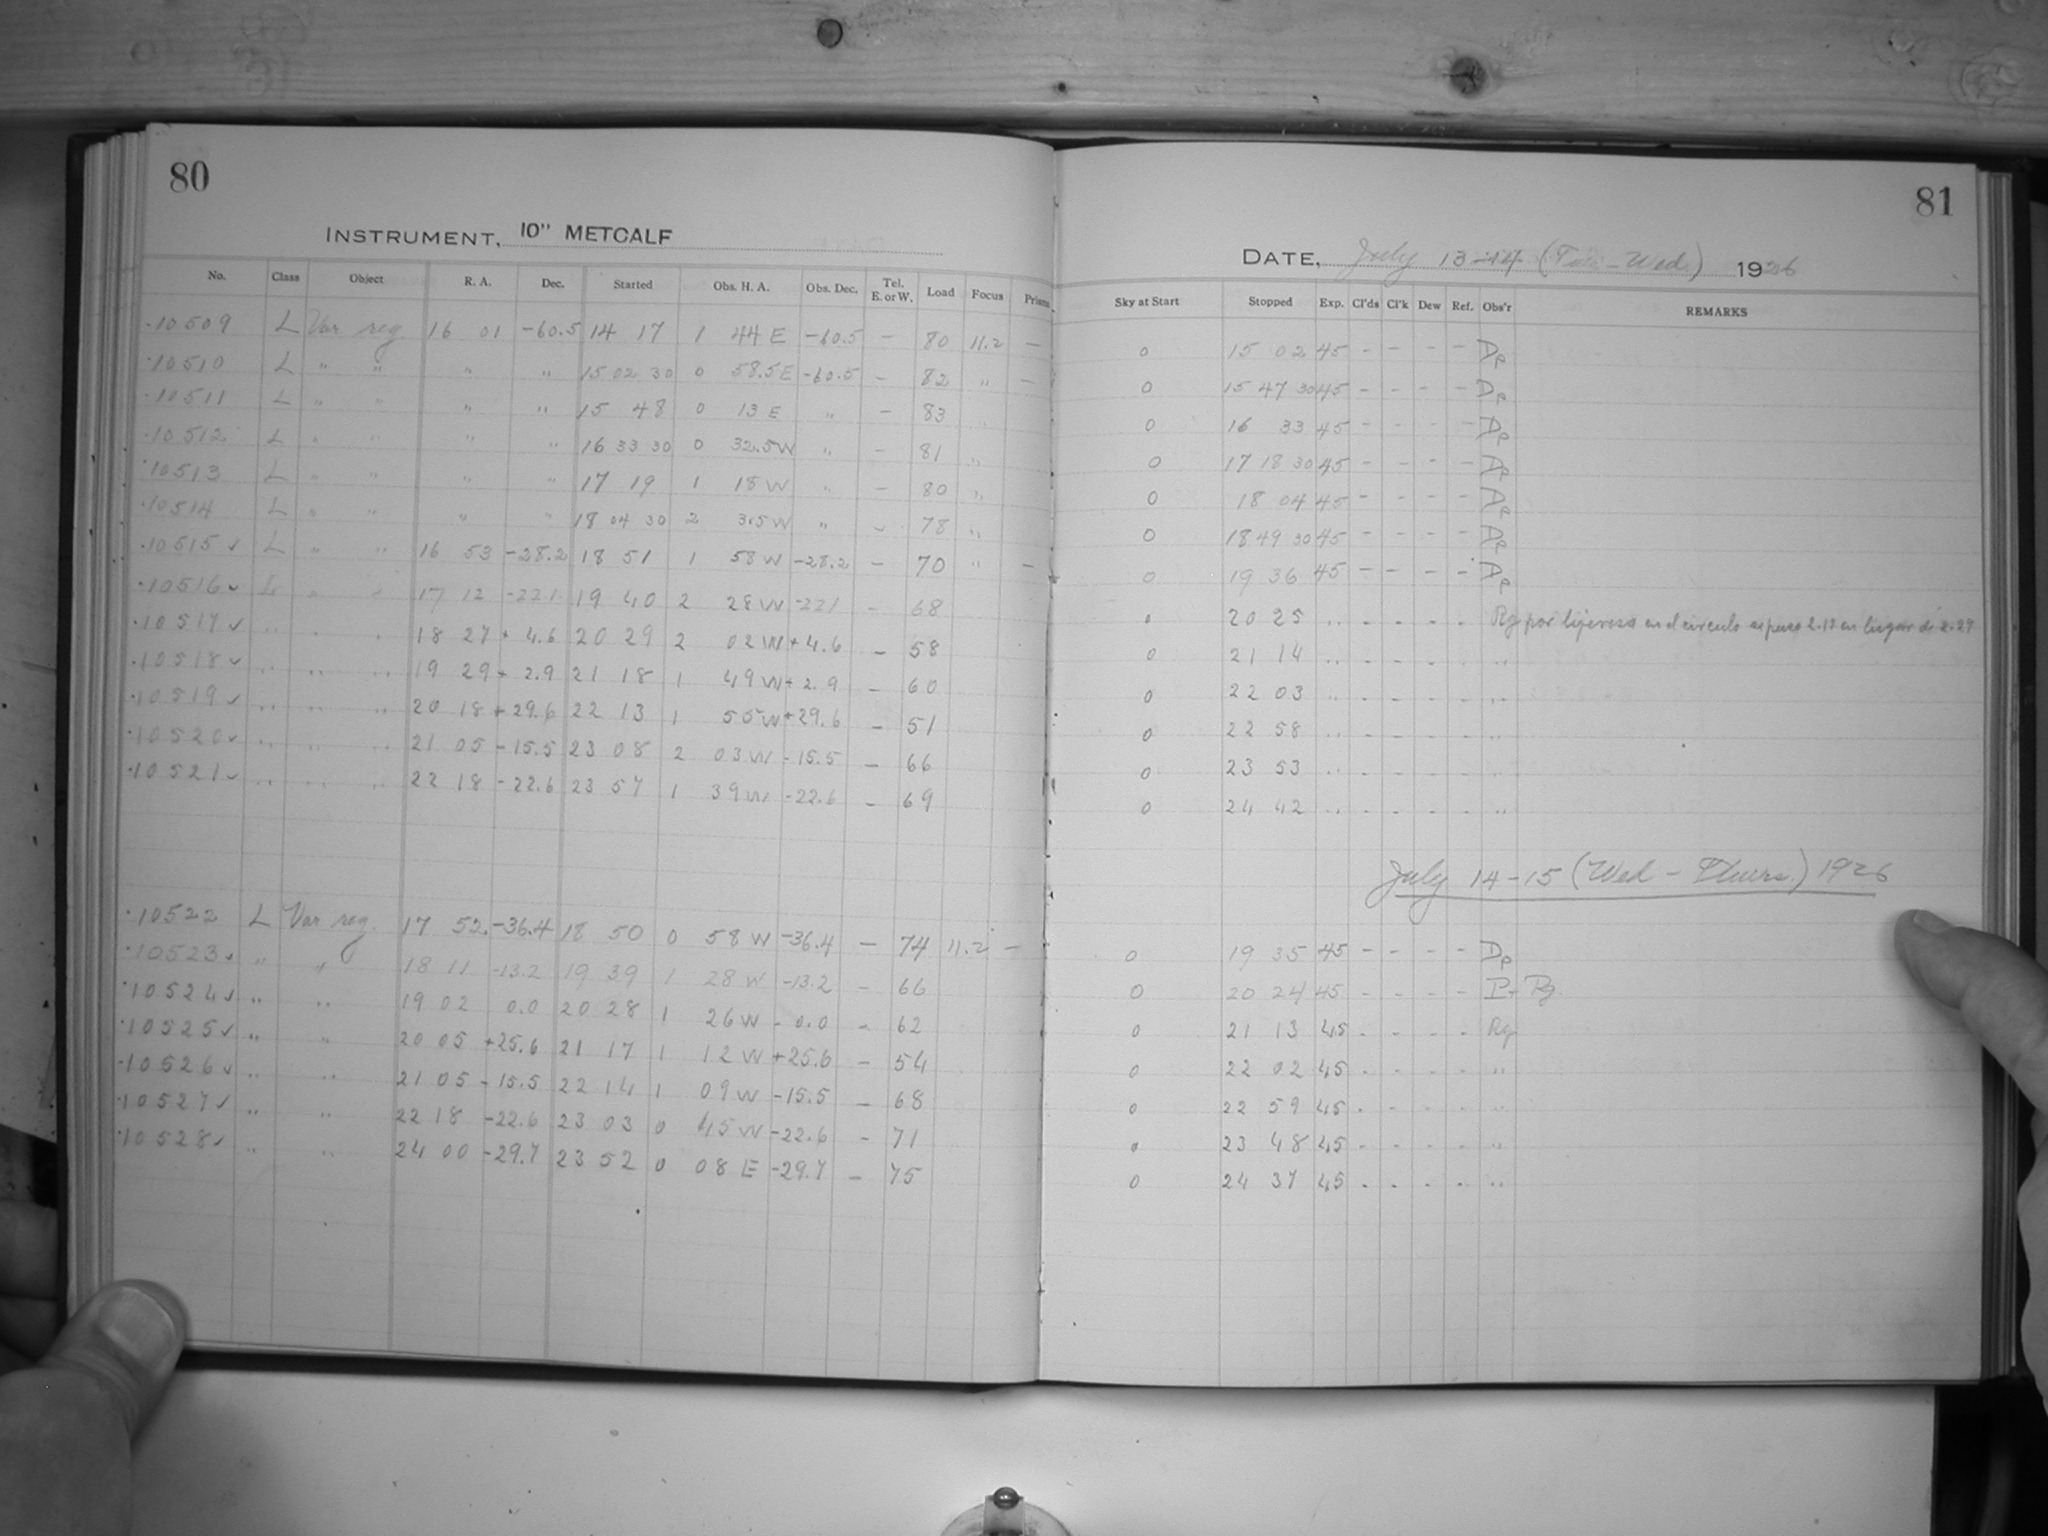 80
INSTRUMENT, 10" METCALF
No. Class Object R. A. Dec. Started Obs. H. A. Obs. Dec. Tel. E. or W. Load Focus Prisms
·10509 L Var reg 16 01 -60.5 14 17 1 44 E -60.5 - 80 11.2 -
·10510 L " " " " 15 02 30 0 58.5 E -60.5 - 82 " -
·10511 L " " " " 15 48 0 13 E " - 83 "
·10512 L " " " " 16 33 30 0 32.5 W " - 81 "
·10513 L " " " " 17 19 1 18 W " - 80 "
·10514 L " " " " 18 04 30 2 3.5 W " - 78 "
·10515 ✓ L " " 16 53 -28.2 18 51 1 58 W -28.2 - 70 " -
·10516 ✓ L " " 17 12 -22.1 19 40 2 28 W -22.1 - 68
·10517 ✓ " " " 18 27 + 4.6 20 29 2 02 W + 4.6 - 58
·10518 ✓ " " " 19 29 + 2.9 21 18 1 49 W + 2.9 - 60
·10519 ✓ " " " 20 18 + 29.6 22 13 1 55 W + 29.6 - 51
·10520 ✓ " " " 21 05 - 15.5 23 08 2 03 W - 15.5 - 66
·10521 ✓ " " " 22 18 - 22.6 23 57 1 39 W - 22.6 - 69
·10522 L Var reg. 17 52. -36.4 18 50 0 58 W -36.4 - 74 11.2 -
·10523 ✓ " " 18 11 -13.2 19 39 1 28 W -13.2 - 66
·10524 ✓ " " 19 02 0.0 20 28 1 26 W - 0.0 - 62
·10525 ✓ " " 20 05 +25.6 21 17 1 12 W +25.6 - 54
·10526 ✓ " " 21 05 - 15.5 22 14 1 09 W -15.5 - 68
·10527 ✓ " " 22 18 -22.6 23 03 0 45 W -22.6 - 71
·10528 ✓ " " 24 00 -29.7 23 52 0 08 E -29.7 - 75
81
DATE, July 13-14 (Tues-Wed) 1926
Sky at Start Stopped Exp. Cl'ds Cl'k Dew Ref. Obs'r REMARKS
0 15 02 45 - - - - De
0 15 47 30 45 - - - - De
0 16 33 45 - - - - De
0 17 18 30 45 - - - - De
0 18 04 45 - - - - De
0 18 49 30 45 - - - - De
0 19 36 45 - - - - De
0 20 25 " - - - - Rg por lijereza en el circulo se puso 2.17 en lugar de 2.27
0 21 14 " - - - - "
0 22 03 " - - - - "
0 22 58 " - - - - "
0 23 53 " - - - - "
0 24 42 " - - - - "
July 14-15 (Wed - Thurs.) 1926
0 19 35 45 - - - - De
0 20 24 45 - - - - Rg.
0 21 13 45 - - - - Rg
0 22 02 45 - - - - "
0 22 59 45 - - - - "
0 23 48 45 - - - - "
0 24 37 45 - - - - "